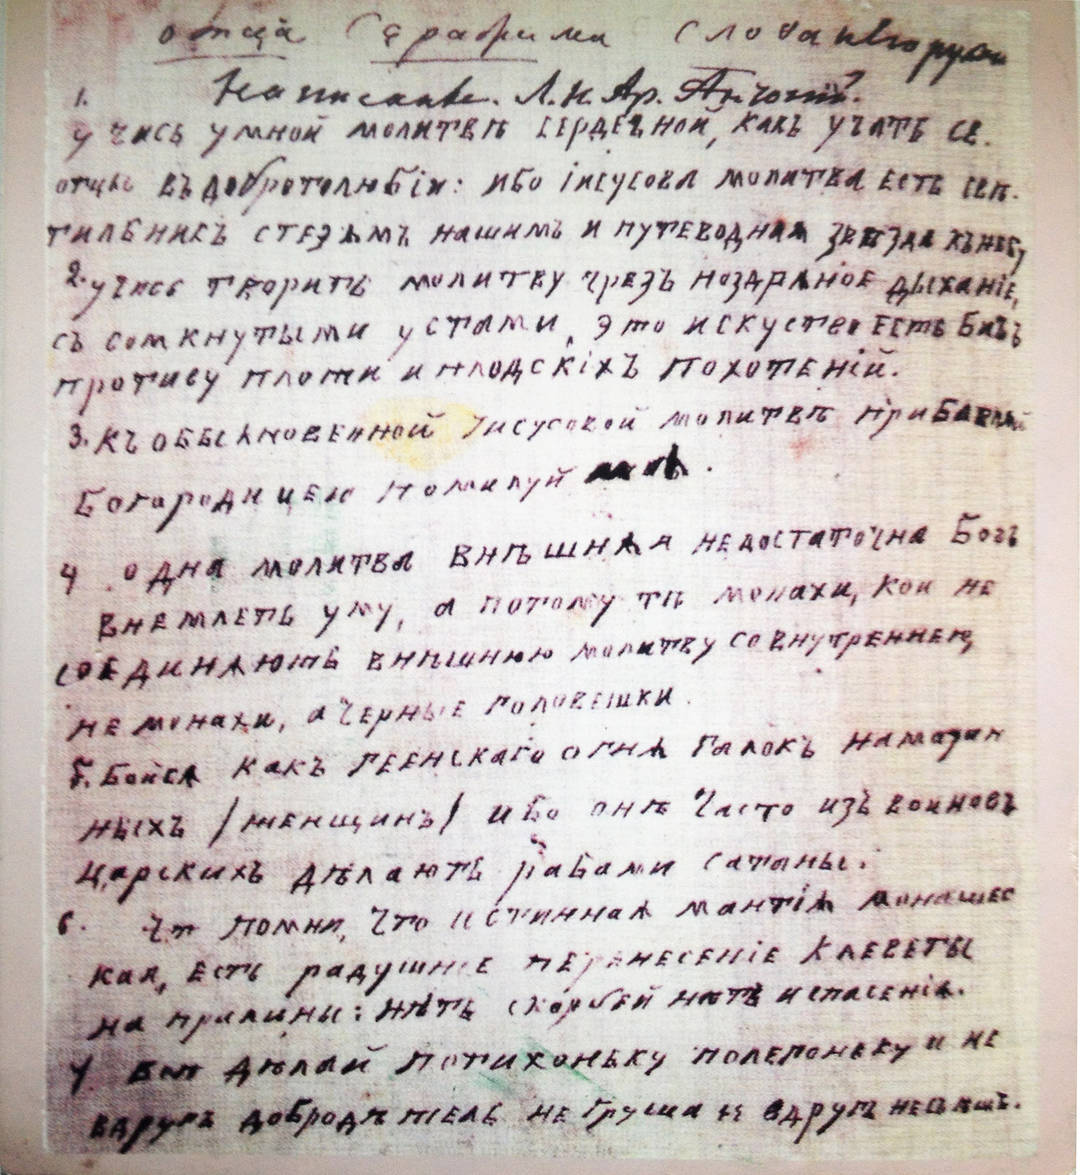 отца Серафима слова
1. Написалъ. А. Н. Ар. Антоній.
учись умной молитвѣ сердечной, какъ учатъ св.
отцы въ добротолюбіи: ибо іисусова молитва есть свѣ-
тильникъ стезямъ нашимъ и путеводная звѣзда къ небу
2. учись творить молитву чрезъ ноздряное дыханіе,
съ сомкнутыми устами, это искуство есть бичъ
противу плоти и плодскихъ похотеній.
3. къ обыкновенной Іисусовой молитвѣ прибавляй
Богородицею помилуй .
4 одна молитва внѣшняя недостаточна Богъ
внемлетъ уму, а потому тѣ монахи, кои не
соединяютъ внѣшнюю молитву со внутреннею,
не монахи, а черные головешки.
5. Бойся какъ геенскаго огня галокъ намазан
ныхъ /женщинъ/ ибо онѣ часто изъ воиновъ
царскихъ дѣлаютъ рабами сатаны.
6. помни, что истинная мантія монашес
кая, есть радушное перенесеніе клеветы
на прапины: нѣтъ скорбей нѣтъ и спасенія.
7 дѣлай потихоньку полегоньку и не
вдругъ добродѣтель не груша ее вдругъ не съѣшь.